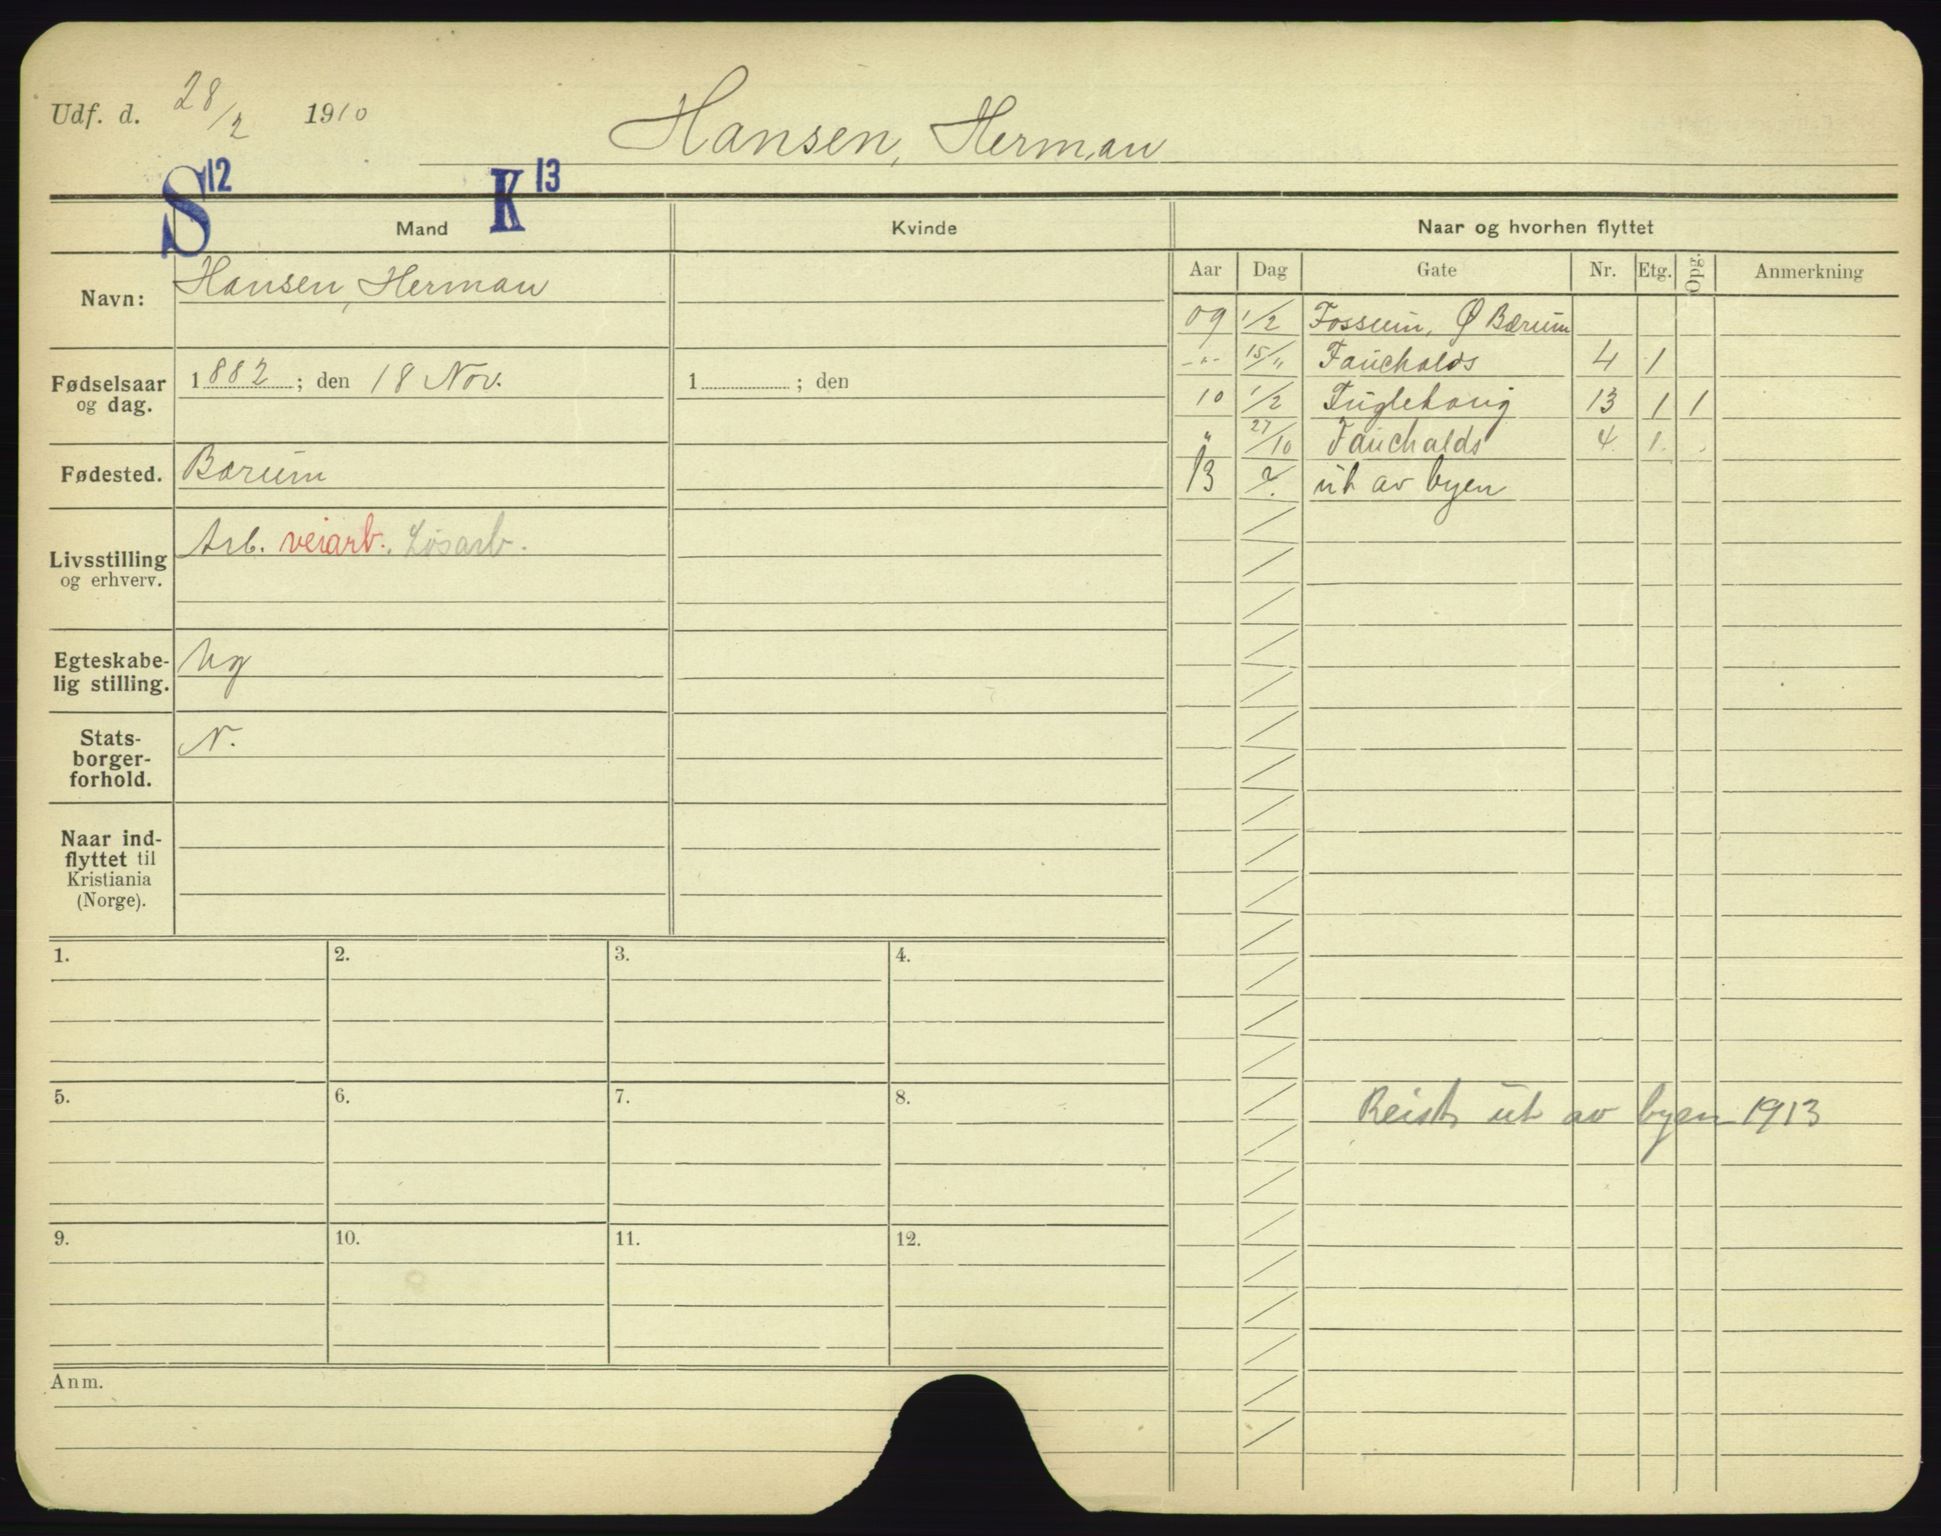 Udf. d. 28/2 1910 Hansen, Herman
S 12 K 13
Mand Kvinde Naar og hvorhen flyttet
Aar Dag Gate Nr. Etg. Opg. Anmerkning
Navn: Hansen, Herman
09 1/2 Fossum, Ø Bærum
-"- 15/" Fauchalds 4 1
Fødselsaar og dag. 1882; den 18 Nov. 1 ; den
10 1/2 Fuglehaug 13 1 1
" 27/10 Fauchalds 4 1.
Fødested. Bærum
13 ?. ut av byen
Livsstilling og erhverv. Arb. veiarb. Løsarb.
Egteskabe-
lig stilling. Ug
Stats-
borger-
forhold. N.
Naar ind-
flyttet til
Kristiania
(Norge).
1. 2. 3. 4.
5. 6. 7. 8.
Reist ut av byen 1913
9. 10. 11. 12.
Anm.